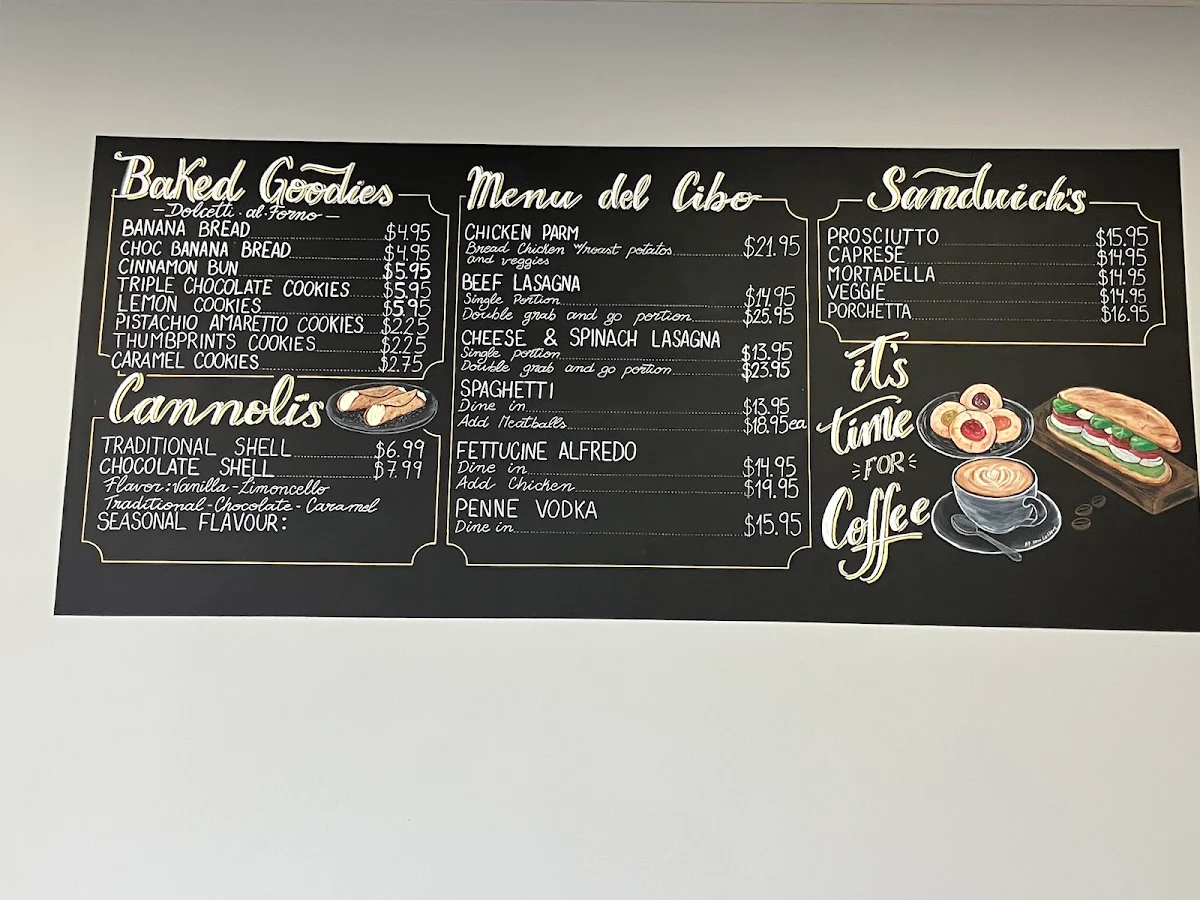 Baked Goodies
- Dolcetti al Forno -
BANANA BREAD $4.95
CHOC BANANA BREAD $4.95
CINNAMON BUN $5.95
TRIPLE CHOCOLATE COOKIES $5.95
LEMON COOKIES $5.95
PISTACHIO AMARETTO COOKIES $2.25
THUMBPRINTS COOKIES $2.25
CARAMEL COOKIES $2.75
Cannolis
TRADITIONAL SHELL $6.99
CHOCOLATE SHELL $7.99
Flavor: Vanilla - Limoncello
Traditional - Chocolate - Caramel
SEASONAL FLAVOUR:
Menu del Cibo
CHICKEN PARM
Bread Chicken w/roast potatos $21.95
and veggies
BEEF LASAGNA
Single Portion $14.95
Double grab and go portion $25.95
CHEESE & SPINACH LASAGNA
Single portion $13.95
Double grab and go portion $23.95
SPAGHETTI
Dine in $13.95
Add Meatballs $18.95ea
FETTUCINE ALFREDO
Dine in $14.95
Add Chicken $19.95
PENNE VODKA
Dine in $15.95
Sandwich's
PROSCIUTTO $15.95
CAPRESE $14.95
MORTADELLA $14.95
VEGGIE $14.95
PORCHETTA $16.95
it's
time
FOR
Coffee